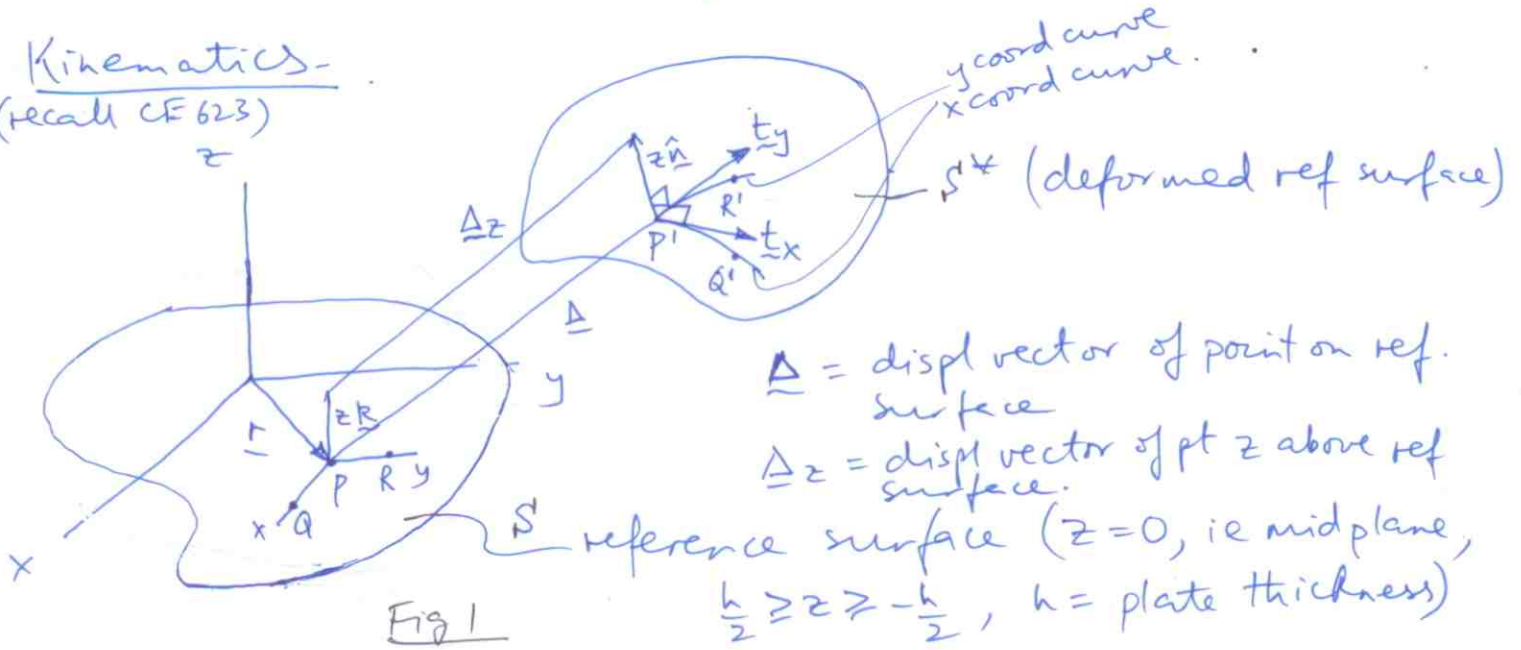 Kinematics-
(recall CE 623)
z
y coord curve
x coord curve.
zn̂
t_y
R'
P'
t_x
Q'
S* (deformed ref surface)
Δz
Δ
y
zk
r
P R y
x Q
S
x
Δ = displ vector of point on ref.
surface
Δz = displ vector of pt z above ref
surface.
reference surface (z=0, ie midplane,
h/2 ≥ z ≥ -h/2, h = plate thickness)
Fig 1